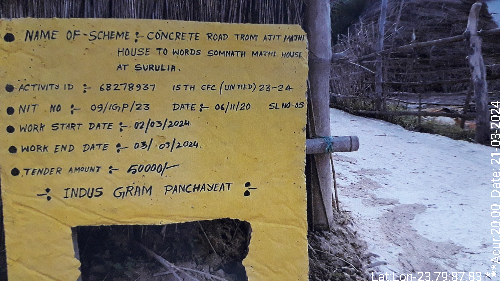 NAME OF-SCHEME :- CONCRETE ROAD FROM AJIT MAJHI
HOUSE TO WORDS SOMNATH MAJHI HOUSE
AT SURULIA.
ACTIVITO ID :- 68278937 15TH CFC (UNTIED) 23-24
NIT NO :- 09/IGP/23 DATE :- 06/11/20 SL NO-05
WORK START DATE :- 02/03/2024
WORK END DATE :- 03/03/2024
TENDER AMOUNT :- 50000/-
INDUS GRAM PANCHAYEAT
Lat Lon-23.79,87.83
Date: 21-03-2024